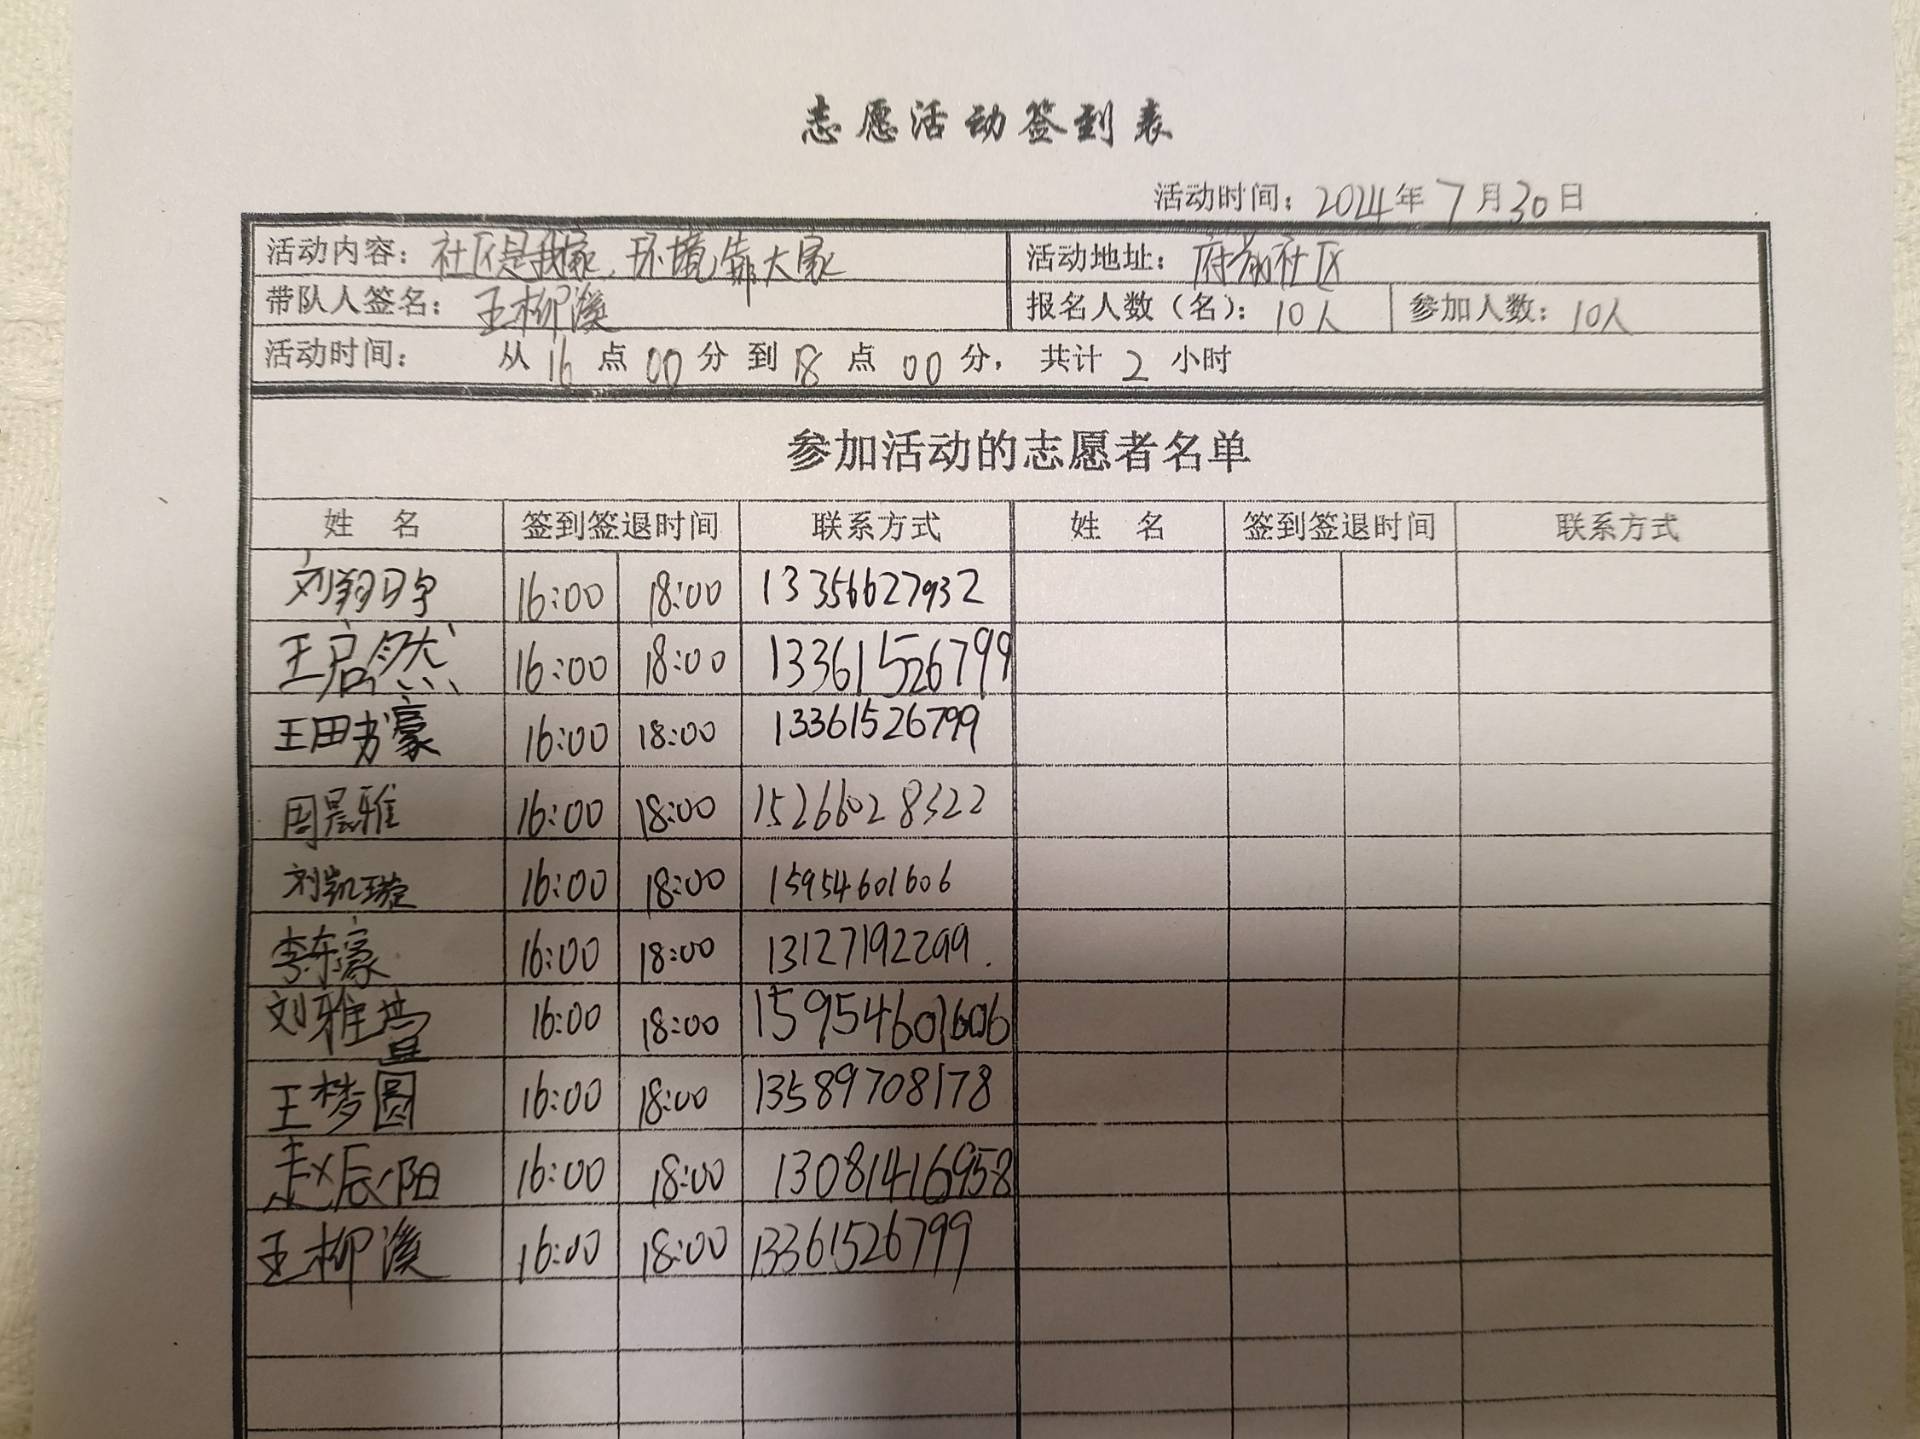 志愿活动签到表
活动时间：2024年7月30日
活动内容：社区是我家，环境靠大家 活动地址：府前社区
带队人签名：王柳溪 报名人数（名）：10人 参加人数：10人
活动时间： 从16点00分到18点00分，共计2小时
参加活动的志愿者名单
姓 名 签到签退时间 联系方式 姓 名 签到签退时间 联系方式
16:00 18:00 13356627932
王启然 16:00 18:00 13361526799
王田书豪 16:00 18:00 13361526799
周晨雅 16:00 18:00 15266028322
刘凯璇 16:00 18:00 15954601606
李东豪 16:00 18:00 13127192299
16:00 18:00 15954601606
王梦圆 16:00 18:00 13589708178
赵辰阳 16:00 18:00 13081416958
王柳溪 16:00 18:00 13361526799